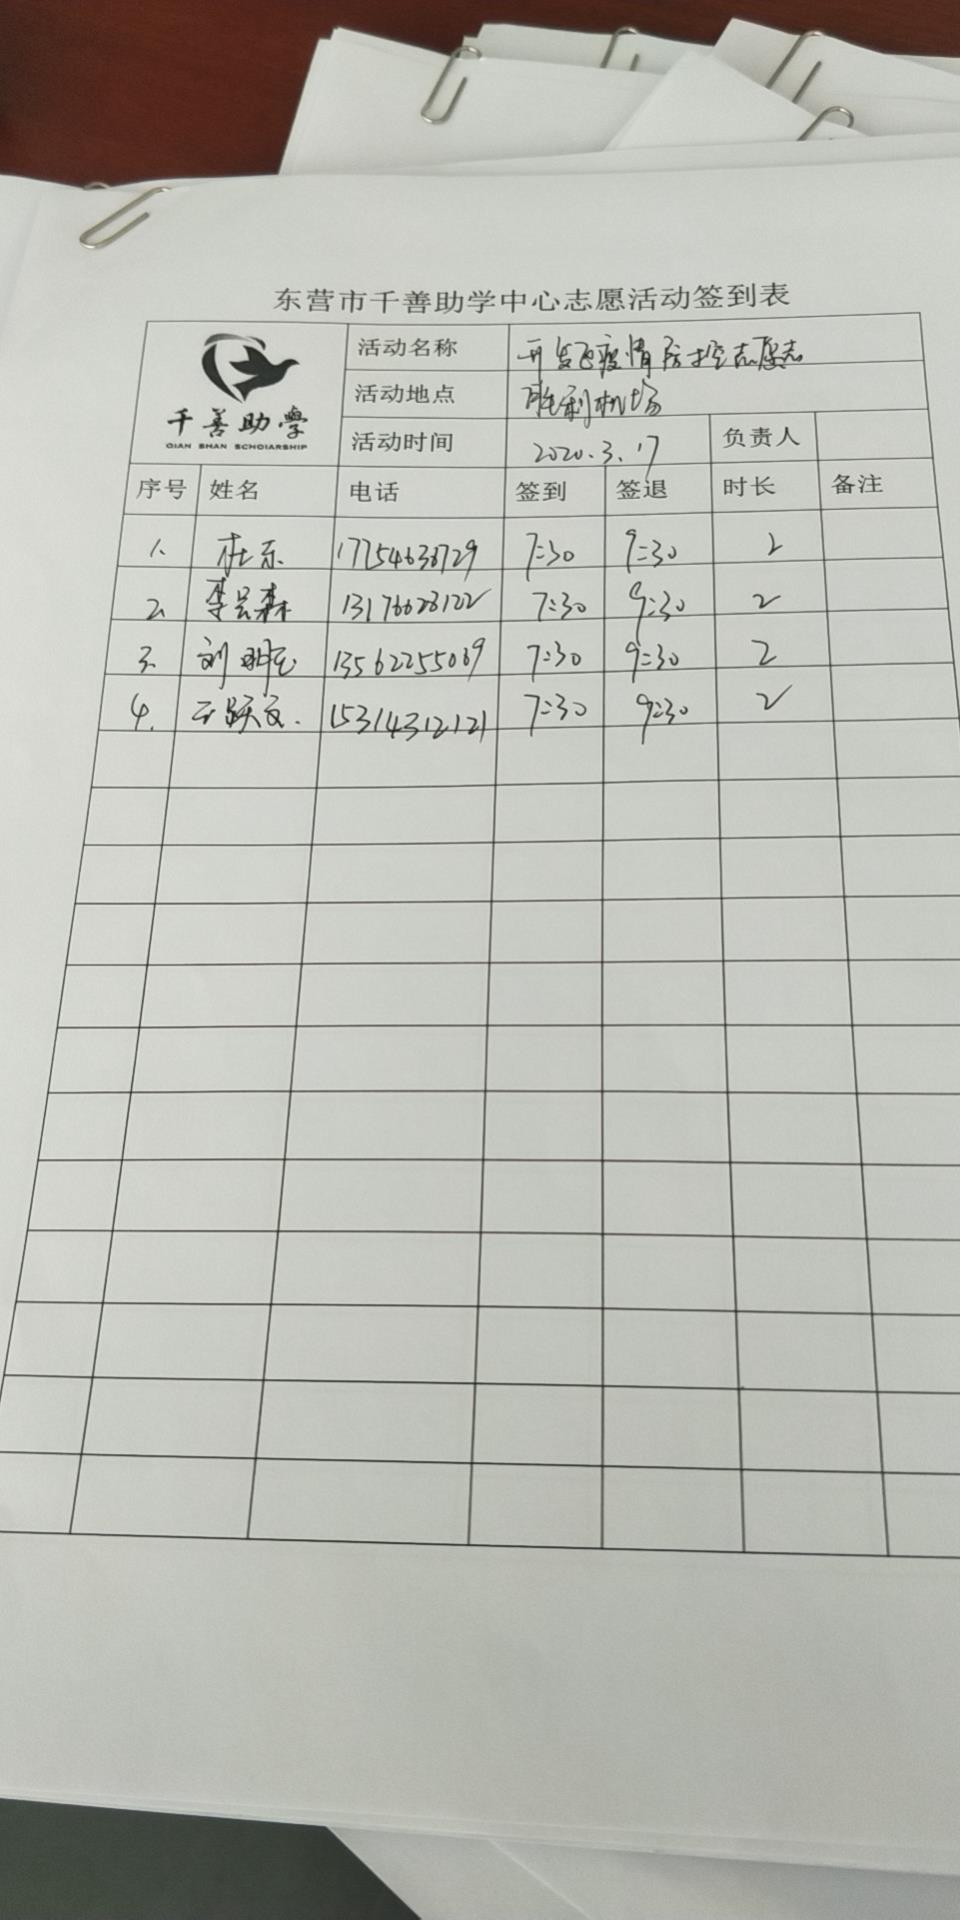 东营市千善助学中心志愿活动签到表
千善助學
QIAN SHAN SCHOIARSHIP
活动名称 开发区疫情防控志愿志
活动地点 胜利机场
活动时间 2020.3.17 负责人
序号 姓名 电话 签到 签退 时长 备注
1. 杜东 17754638729 7:30 9:30 2
2. 李呈森 13176628122 7:30 9:30 2
3. 刘 13562255069 7:30 9:30 2
4. 王跃文. 15314312121 7:30 9:30 2